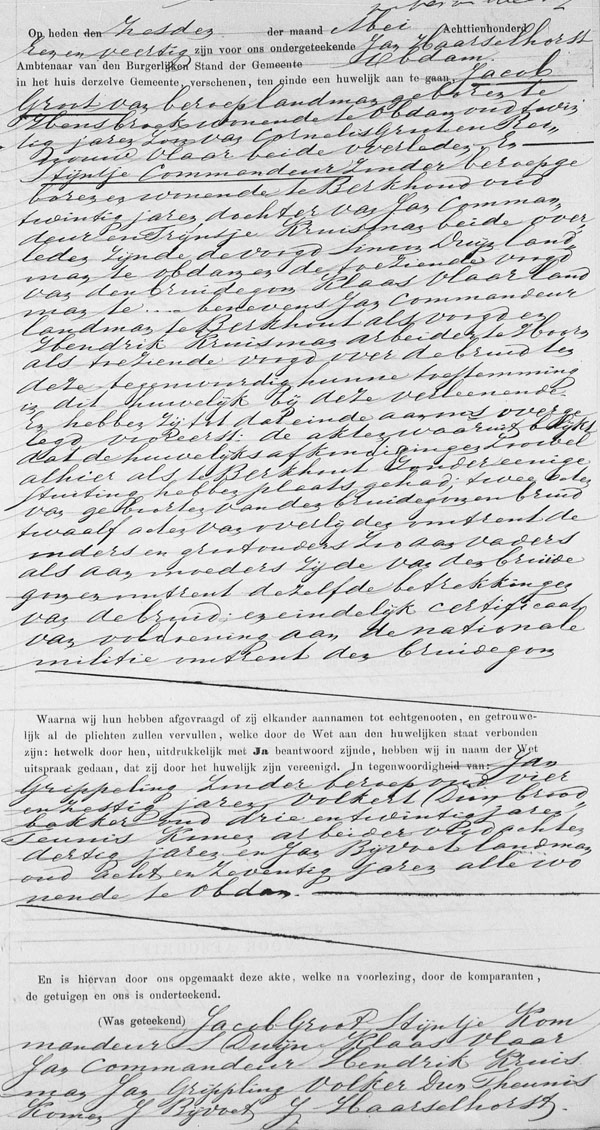 Op heden den Zesden der maand Mei Achttienhonderd
Een en veertig zijn voor ons ondergeteekende Jan Haarselhorst
Ambtenaar van den Burgerlijken Stand der Gemeente Obdam
in het huis derzelve Gemeente, verschenen, ten einde een huwelijk aan te gaan, Jacob
Groot van beroep landman geboren te
Hensbroek wonende te Obdam oud twin
tig jaren zoon van Cornelis Groot en Rei,
nouw Vlaar beide overleden En
Stijntje Commandeur zonder beroep ge
boren en wonende te Berkhoud oud
twintig jaren dochter van Jan Comman
deur en Trijntje Kruisman beide over
leden zijnde de voogd Simon Duijn land,
man te obdam en de toeziende voogd
van den bruidegom Klaas Vlaar land
man te ... benevens Jan Commandeur
landman te Berkhout als voogd en
Hendrik Kruisman arbeider te Hoorn
als toeziende voogd over de bruid ten
deze tegenwoordig hunne toestemming
in dit huwelijk bij deze verleenende.
En hebben zij tot dat einde aan ons overge
legd vooreerst: de akten waaruit blijkt
dat de huwelijks afkondigingen zoowel
alhier als te Berkhout zonder eenige
stuiting hebben plaats gehad; twee acten
van geboorten van den bruidegom en bruid
twaalf acten van overlijden omtrent de
ouders en grootouders zoo aan vaders
als aan moeders zijde van den bruide
gom en omtrent dezelfde betrekkingen
van de bruid: en eindelijk certificaat
van voldoening aan de nationale
militie omtrent den bruidegom
Waarna wij hun hebben afgevraagd of zij elkander aannamen tot echtgenooten, en getrouwe-
lijk al de plichten zullen vervullen, welke door de Wet aan den huwelijken staat verbonden
zijn: hetwelk door hen, uitdrukkelijk met Ja beantwoord zijnde, hebben wij in naam der Wet
uitspraak gedaan, dat zij door het huwelijk zijn vereenigd. In tegenwoordigheid van: Jan
Grippeling zonder beroep oud vier
en zestig jaren Volkert Duin brood
bakker oud drie en twintig jaren
Teunis Komen arbeider oud achten
dertig jaren en Jan Bijvoet landman
oud acht en zeventig jaren alle wo
nende te Obdam.
En is hiervan door ons opgemaakt deze akte, welke na voorlezing, door de komparanten,
de getuigen en ons is onderteekend.
(Was geteekend) Jacob Groot Stijntje Kom
mandeur S Duijn Klaas Vlaar
Jan Commandeur Hendrik Kruis
man Jan Grippling Volker Duin Theunis
Komen J Bijvoet J Haarselhorst.